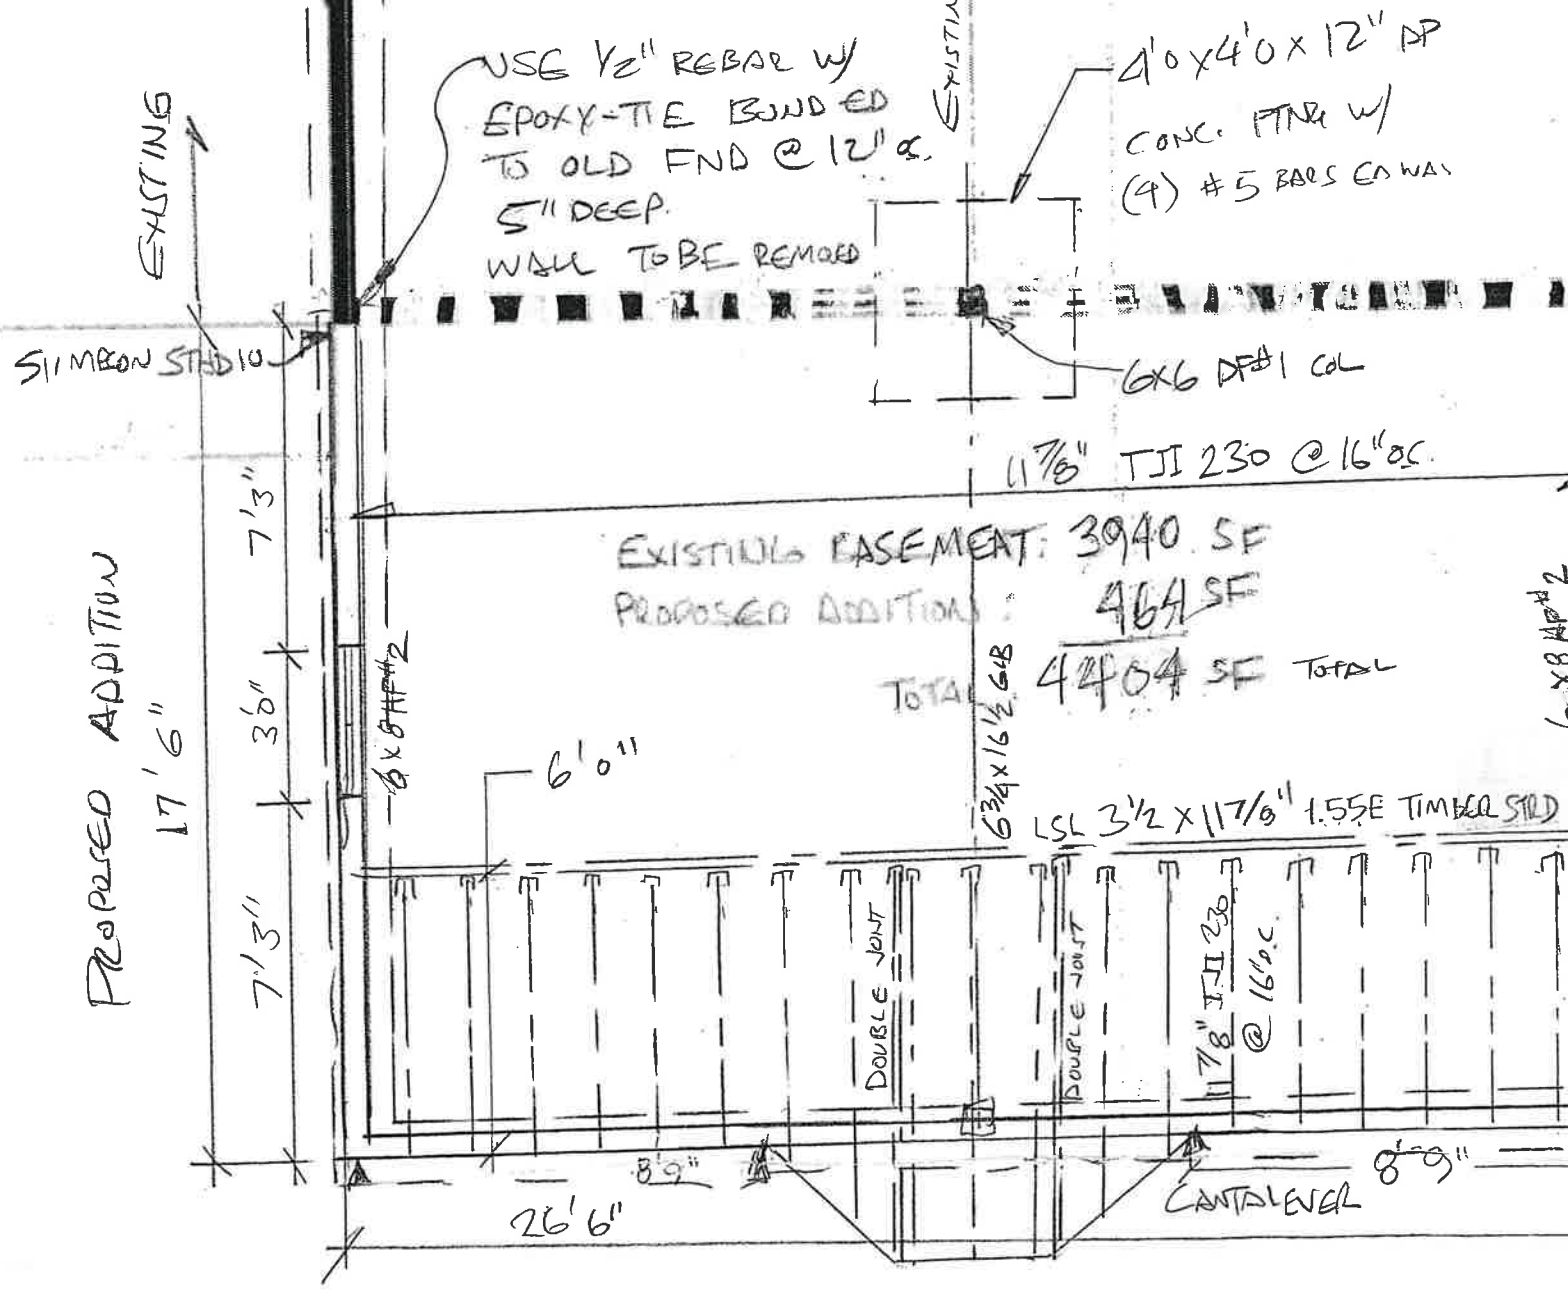 EXISTIN
USE 1/2" REBAR W/
EPOXY-TIE BONDED
TO OLD FND @ 12" OC.
5" DEEP.
WALL TO BE REMOED
4'0 x 4'0 x 12" DP
CONC. FTNG W/
(4) #5 BARS EA WA
EXISTING
SIIMPSON STHD10
6x6 DF#1 COL
11 7/8" TJI 230 @ 16" OC.
EXISTING BASEMEAT: 3940 SF
PROPOSED ADDITION: 464 SF
TOTAL 4404 SF TOTAL
PROPOSED ADDITION
17'6"
7'3"
3'0"
7'3"
6x8 HF#2
6'0"
6 3/4 x 16 1/2 GLB
6x8 HF#2
LSL 3 1/2 x 11 7/8" 1.55E TIMBER STRD
DOUBLE JOIST
DOUBLE JOIST
11 7/8" TJI 230
@ 16" O.C.
8'9"
8'-9"
CANTALEVER
26'6"